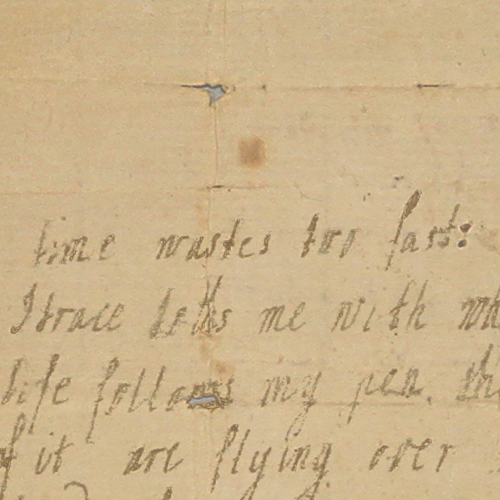 time wastes too fast:
I trace tells me with
life follows my pen. th
of it are flying over